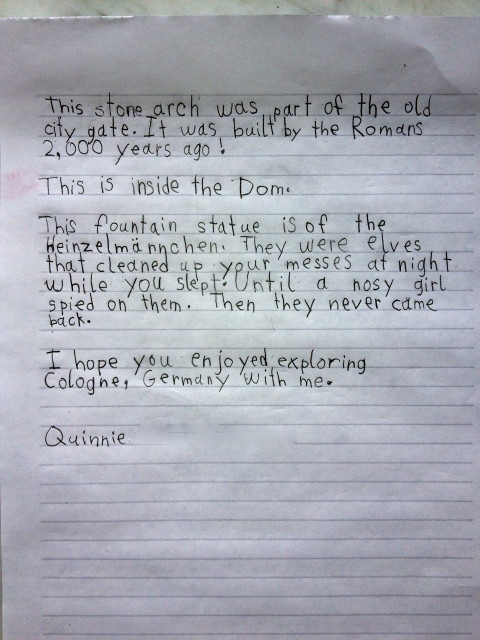 This stone arch was part of the old
city gate. It was built by the Romans
2,000 years ago!
This is inside the Dom.
This fountain statue is of the
Heinzelmännchen. They were elves
that cleaned up your messes at night
while you slept. Until a nosy girl
spied on them. Then they never came
back.
I hope you enjoyed exploring
Cologne, Germany with me.
Quinnie